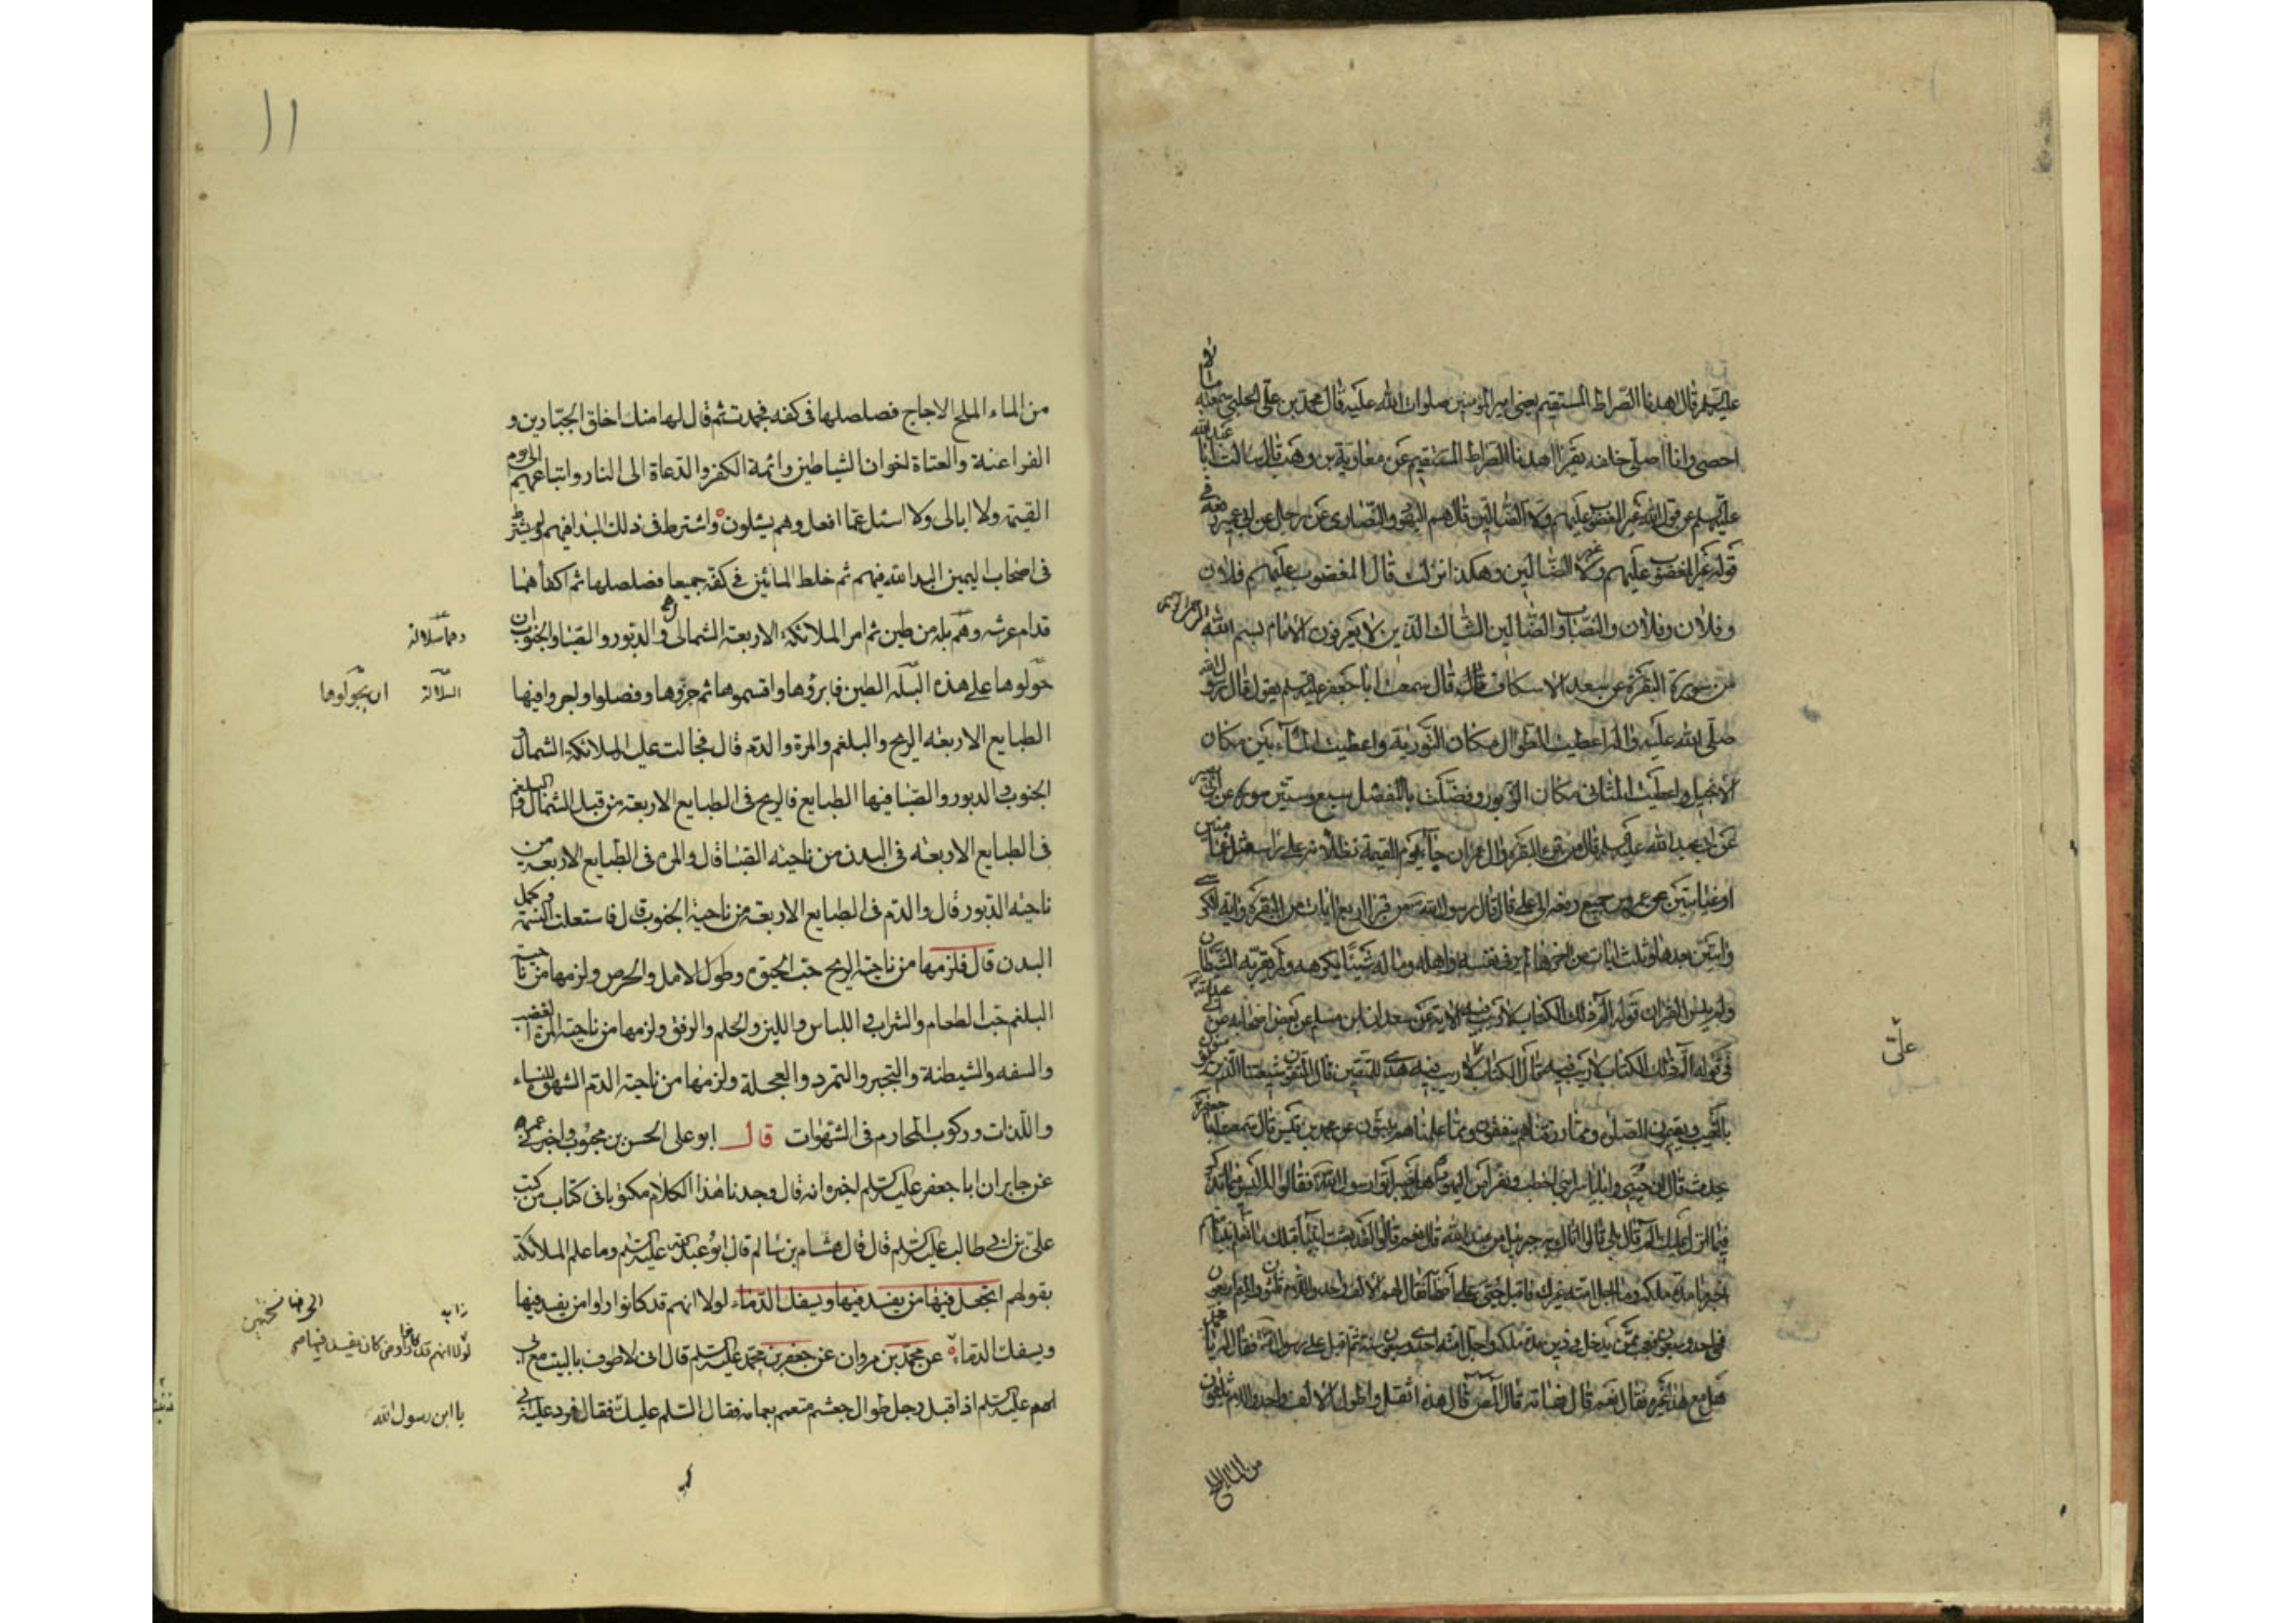 عليه السلم قال اهدنا الصراط المستقيم يعني امير المؤمنين صلوات الله عليه قال محمد بن علي الحلبي سمعته ما لا
احصى وانا اصلى خلفه يقرأ اهدنا الصراط المستقيم عن معاوية بن وهب قال سالت ابا عبد الله
عليه السلم عن قول الله غير المغضوب عليهم ولا الضالين قال هم اليهود والنصارى عن رجل عن ابن ابى عمير رفعه في
قوله غير المغضوب عليهم وغير الضالين وهكذا نزلت قال المغضوب عليهم فلان
وفلان وفلان والنصاب والضالين الشاك الذين لا يعرفون الامام بسم الله الرحمن الرحيم
من سورة البقرة عن سعد الاسكاف قال سمعت ابا جعفر عليه السلم يقول قال رسول الله
صلى الله عليه واله اعطيت الطوال مكان التورية واعطيت المائين مكان
الانجيل واعطيت المثانى مكان الزبور وفضلت بالمفصل سبع وستين سورة عن ابى بصير
عن ابى عبد الله عليه السلم قال من قرء البقرة وال عمران جاء يوم القيمة تظلانه على راسه مثل الغمامتين
او غيابتين عن عمرو بن جميع رفعه الى على قال قال رسول الله من قرا اربع ايات من البقرة واية الكرسي
وايتين بعدها وثلث ايات من اخرها لم ير في نفسه واهله وماله شيئا يكرهه ولم يقربه الشيطان
ولم ينس القران قوله الم ذلك الكتاب لا ريب فيه عن سعدان بن مسلم عن بعض اصحابه عن ابى عبد الله
في قوله الم ذلك الكتاب لا ريب فيه قال الكتاب لا ريب فيه هدى للمتقين قال المتقون شيعتنا الذين يؤمنون
بالغيب ويقيمون الصلوة ومما رزقناهم ينفقون ومما علمناهم يبثون عن محمد بن قيس قال سمعت ابا جعفر
يحدث قال ان حييا وابا ياسر ابنى اخطب ونفرا من اليهود اهل خيبر اتوا رسول الله فقالوا له اليس فيما تذكر
فيما انزل عليك الم قال بلى قالوا اتاك به جبرئيل من عند الله قال نعم قالوا لقد بعثت انبياء قبلك ما نعلم نبيا منهم
اخبرنا مدة ملكه وما اجل امته غيرك فاقبل حيي على اصحابه فقال لهم الالف واحد واللام ثلثون والميم اربعون
فهي احدى وسبعون فعجب ممن يدخل في دين مدة ملكه واجل امته احدى وسبعون سنة ثم اقبل على رسول الله فقال له يا محمد
هل مع هذا غيره فقال نعم قال فهاته قال المص قال هذه اثقل واطول الالف واحد واللام ثلثون
من الماء المالح
علىّ
١١
من الماء الملح الاجاج فصلصلها في كفه فجمدت ثم قال لها منك اخلق الجبارين و
الفراعنة والعتاة اخوان الشياطين وائمة الكفر والدعاة الى النار واتباعهم الى يوم
القيمة ولا ابالى ولا اسئل عما افعل وهم يسئلون واشترط في ذلك البداء فيهم ولم يشترط
في اصحاب اليمين البداء لله فيهم ثم خلط المائين في كفه جميعا فصلصلها ثم اكفأهما
قدام عرشه وهما بلة من طين ثم امر الملائكة الاربعة الشمال والدبور والصبا والجنوب ان
جولوا على هذه البلة الطين فابرؤها واقسموها ثم جزوها وفصلوا واجروا فيها
الطبايع الاربعة الريح والبلغم والمرة والدم قال فجالت عليها الملائكة الشمال و
الجنوب والدبور والصبا فيها الطبايع فالريح في الطبايع الاربعة من قبل الشمال والبلغم
في الطبايع الاربعة في البدن من ناحية الصبا قال والمرة في الطبايع الاربعة من
ناحية الدبور قال والدم في الطبايع الاربعة من ناحية الجنوب قال فاستعلت النسمة وكمل
البدن قال فلزمها من ناحية الريح حب الحيوة وطول الامل والحرص ولزمها من ناحية
البلغم حب الطعام والشراب واللباس واللين والحلم والرفق ولزمها من ناحية المرة الغضب
والسفه والشيطنة والتجبر والتمرد والعجلة ولزمها من ناحية الدم الشهوة للنساء
واللذات وركوب المحارم في الشهوات قال ابو على الحسن بن محبوب واخبرنى عمرو
عن جابر ان ابا جعفر عليه السلم اخبره انه قال وجدنا هذا الكلام مكتوبا في كتاب من كتب
على بن ابى طالب عليه السلم قال قال هشام بن سالم قال ابو عبد الله عليه السلم وما علم الملائكة
بقولهم اتجعل فيها من يفسد فيها ويسفك الدماء لولا انهم قد كانوا راوا من يفسد فيها
ويسفك الدماء عن محمد بن مروان عن جعفر بن محمد عليه السلم قال انى لاطوف بالبيت مع ابى
عليه السلم اذ اقبل رجل طوال جعشم متعمم بعمامة فقال السلم عليك فقال فرد عليه ابى
وهما سلالة
السلالة ان يجولوها
لولا انهم قد كانوا راوا من كان يفسد فيها
يا ابن رسول الله